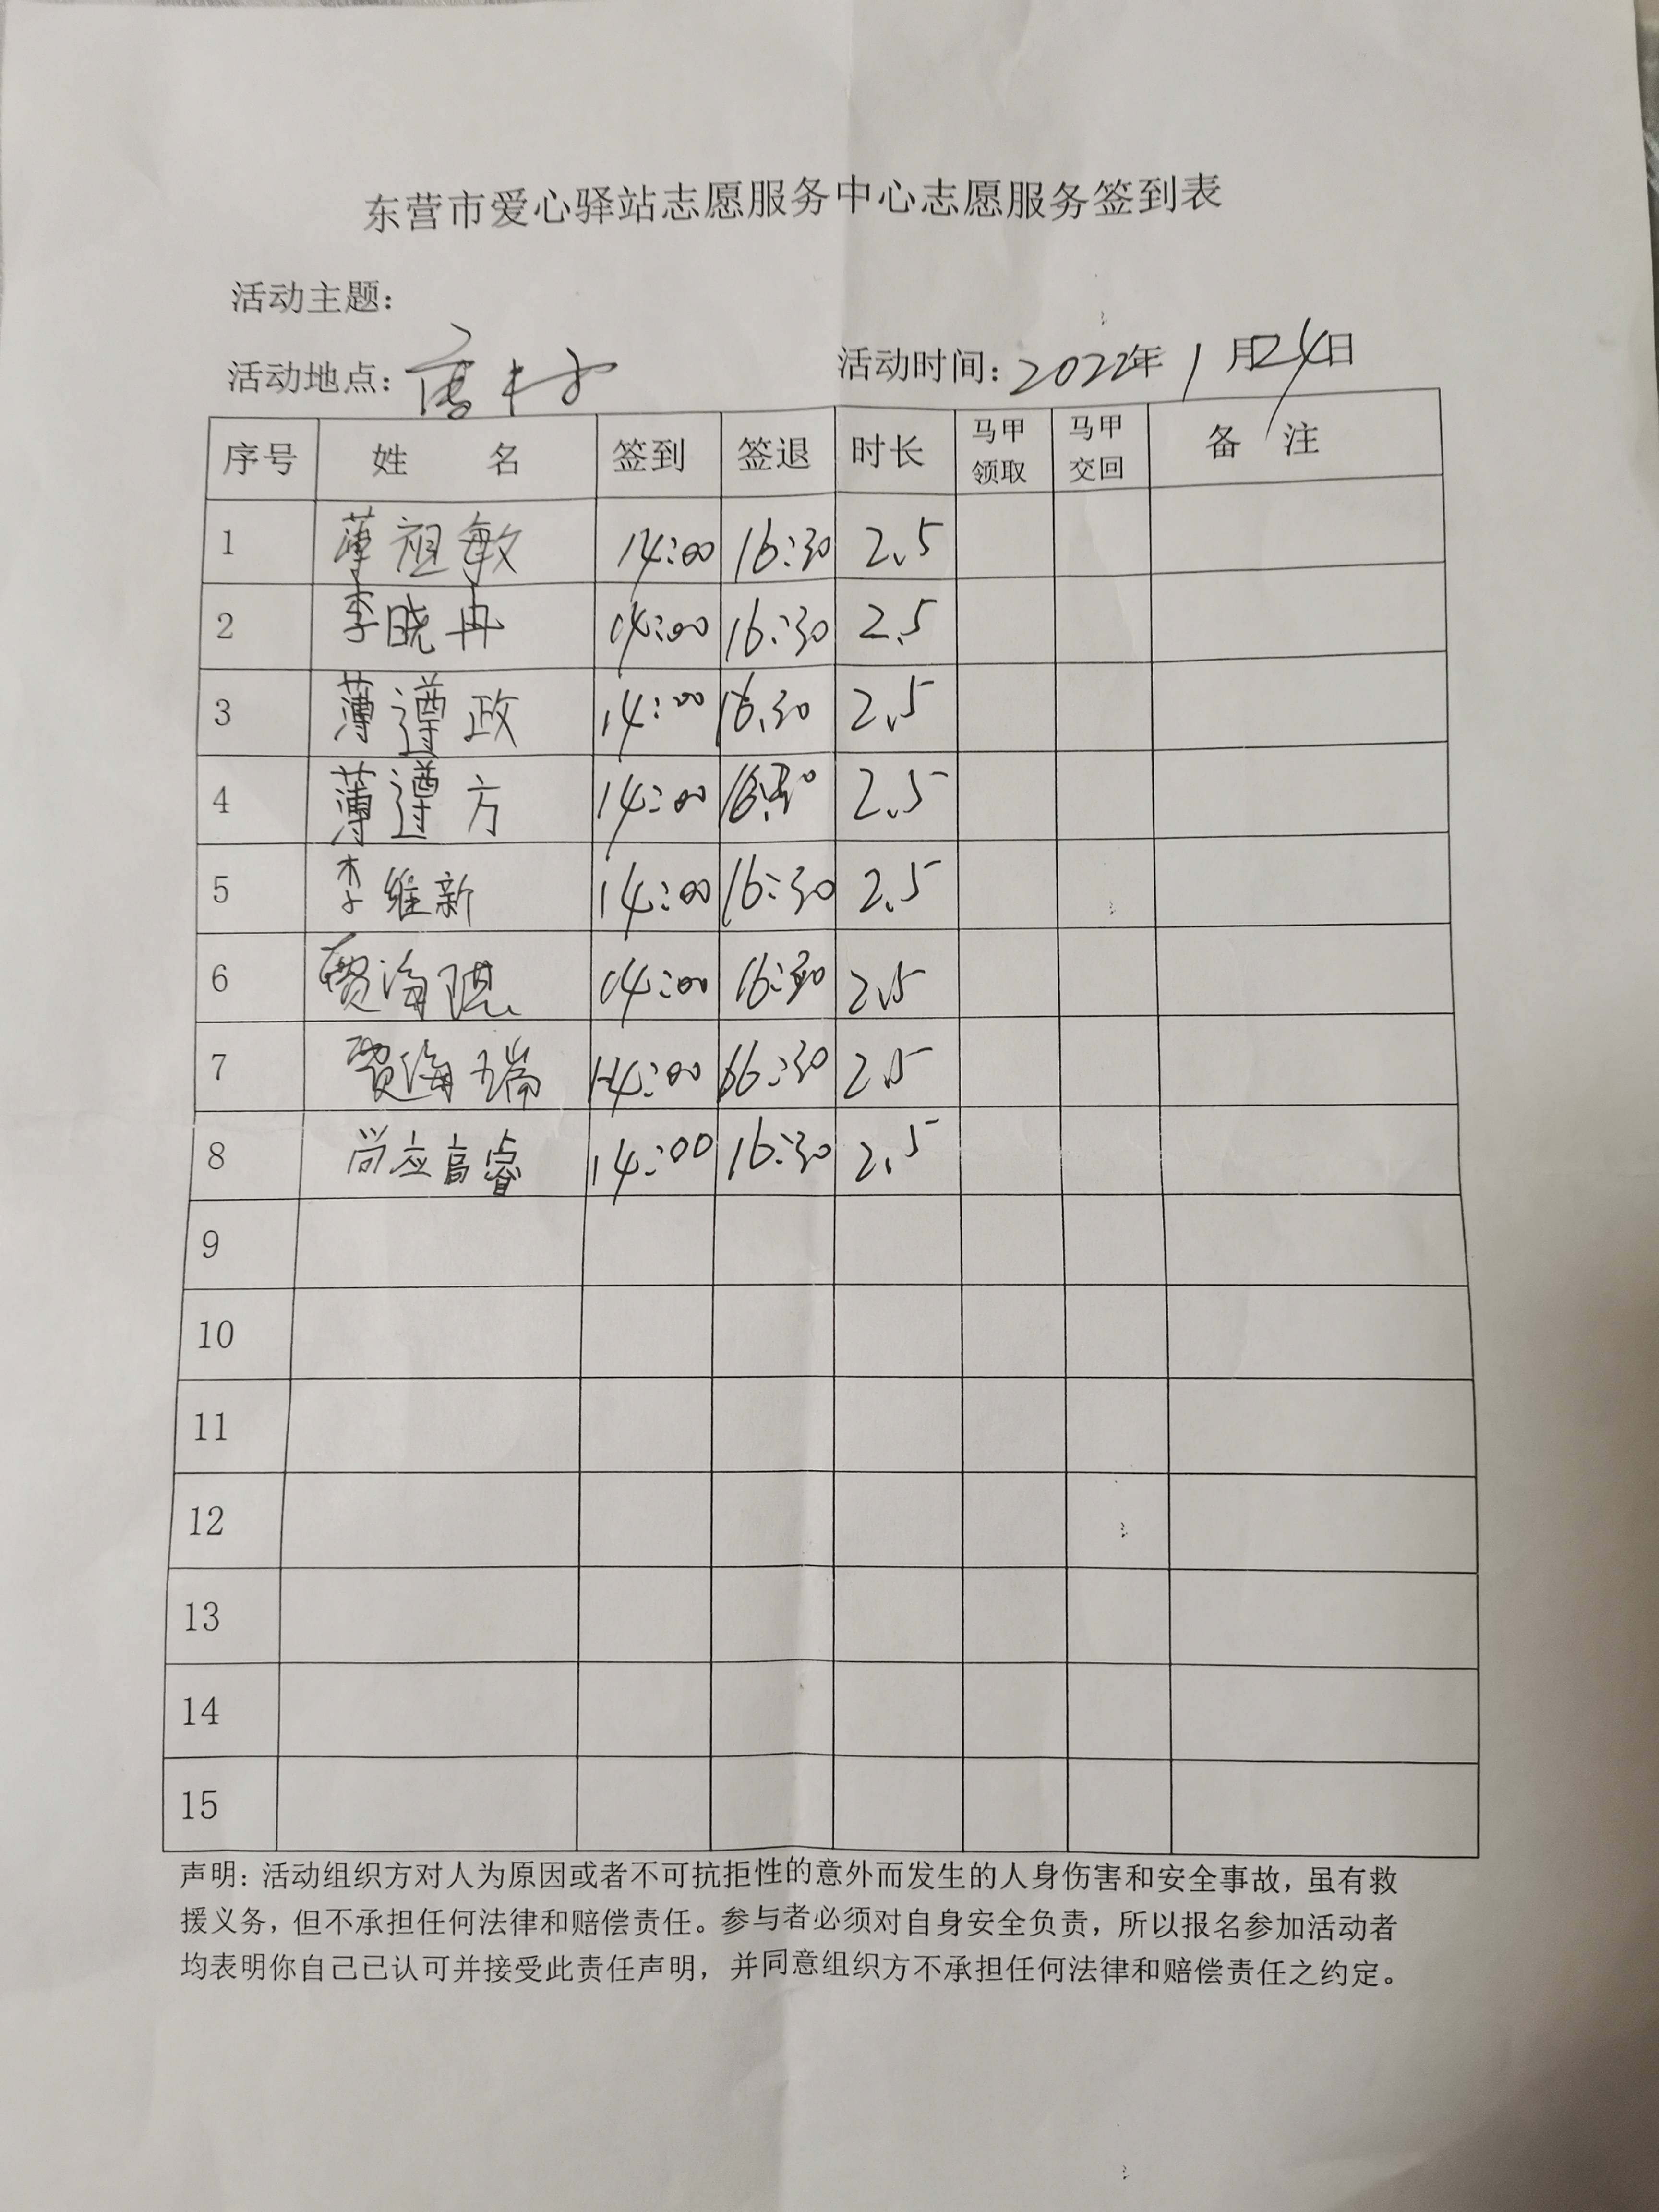 东营市爱心驿站志愿服务中心志愿服务签到表
活动主题：
活动地点：唐村 活动时间：2022年1月24日
序号 姓 名 签到 签退 时长 马甲领取 马甲交回 备 注
1 薄祖敏 14:00 16:30 2.5
2 李晓冉 14:00 16:30 2.5
3 薄遵政 14:00 16.30 2.5
4 薄遵方 14:00 16:30 2.5
5 李维新 14:00 16:30 2.5
6 贾海琪 14:00 16:30 2.5
7 贾海瑞 14:00 16:30 2.5
8 尚应高睿 14:00 16:30 2.5
9
10
11
12
13
14
15
声明：活动组织方对人为原因或者不可抗拒性的意外而发生的人身伤害和安全事故，虽有救
援义务，但不承担任何法律和赔偿责任。参与者必须对自身安全负责，所以报名参加活动者
均表明你自己已认可并接受此责任声明，并同意组织方不承担任何法律和赔偿责任之约定。